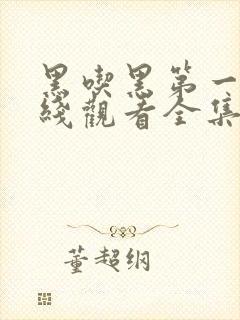 黑喫黑第一
綫觀看全集
董超纲